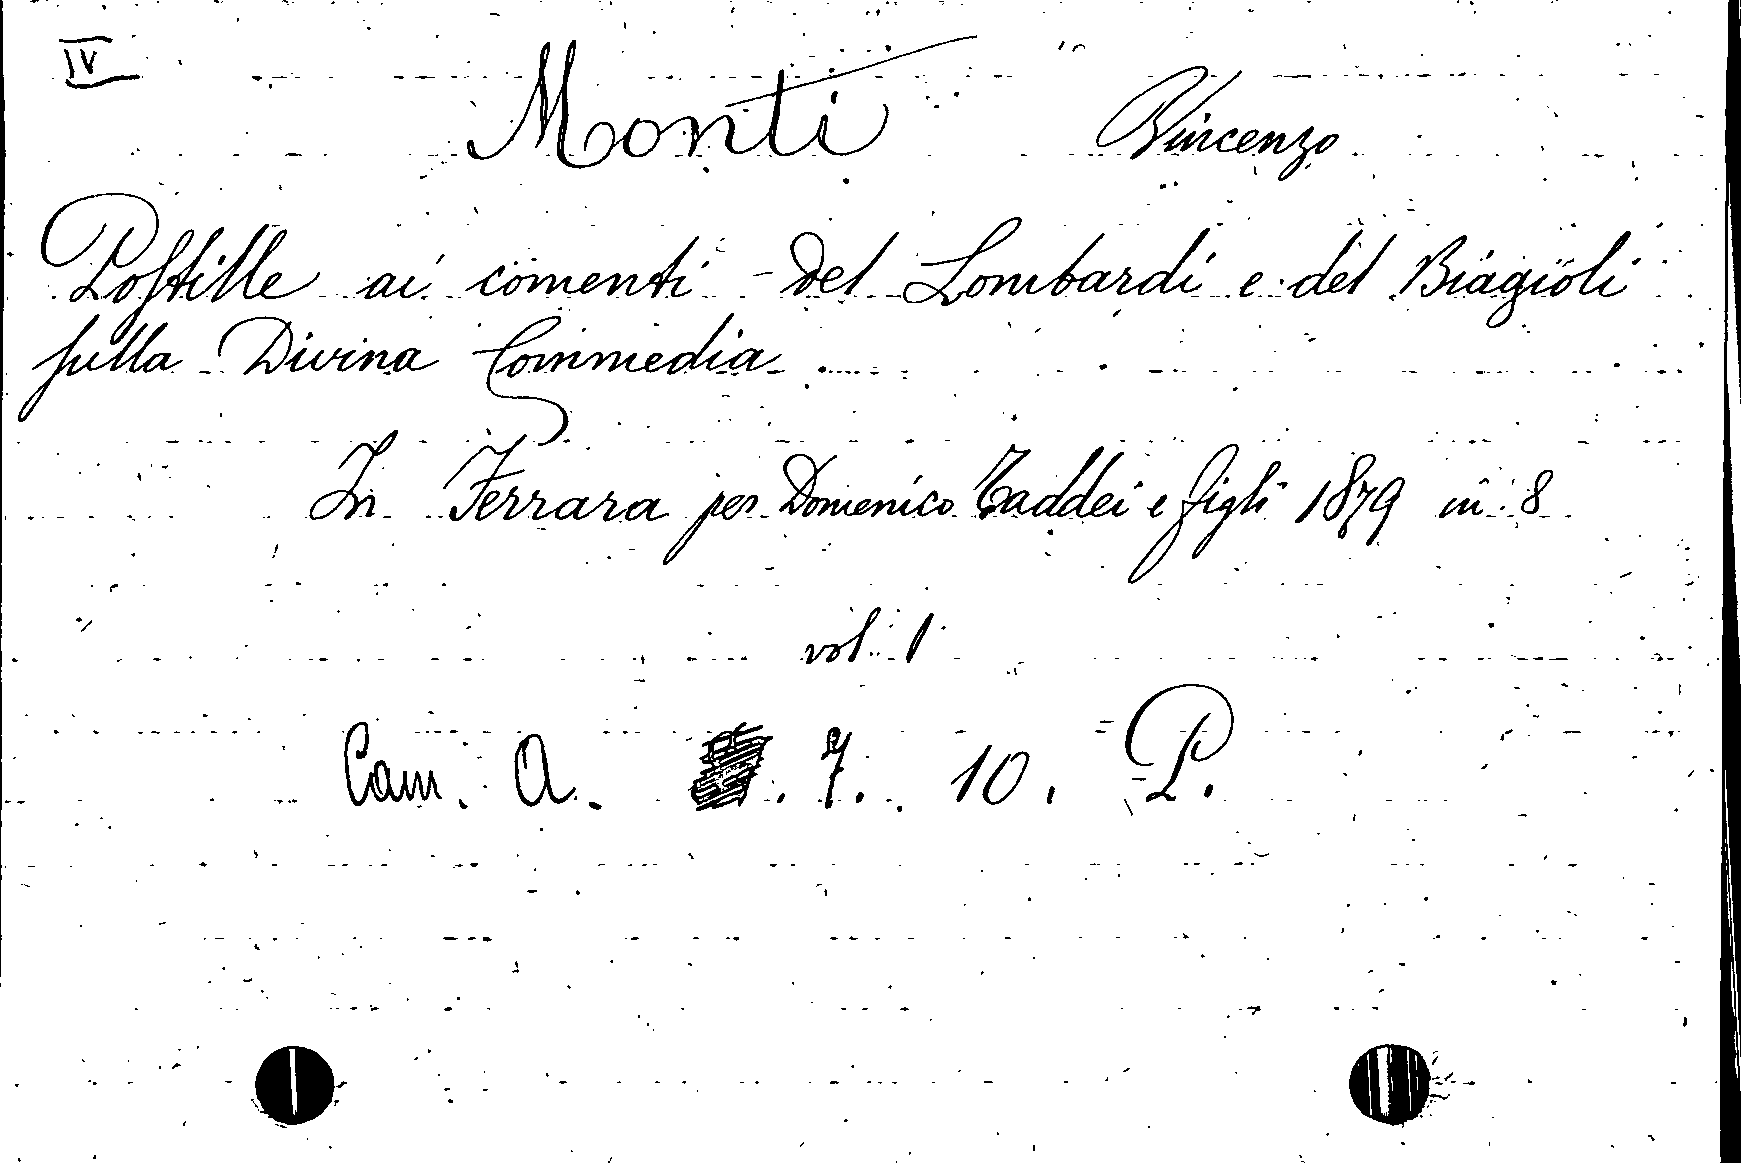 IV
Monti Vincenzo
Postille ai comenti del Lombardi e del Biagioli
sulla Divina Commedia
In Ferrara per Domenico Taddei e figli 1879 in 8
vol. 1
Cam. A. 7. 10. P.